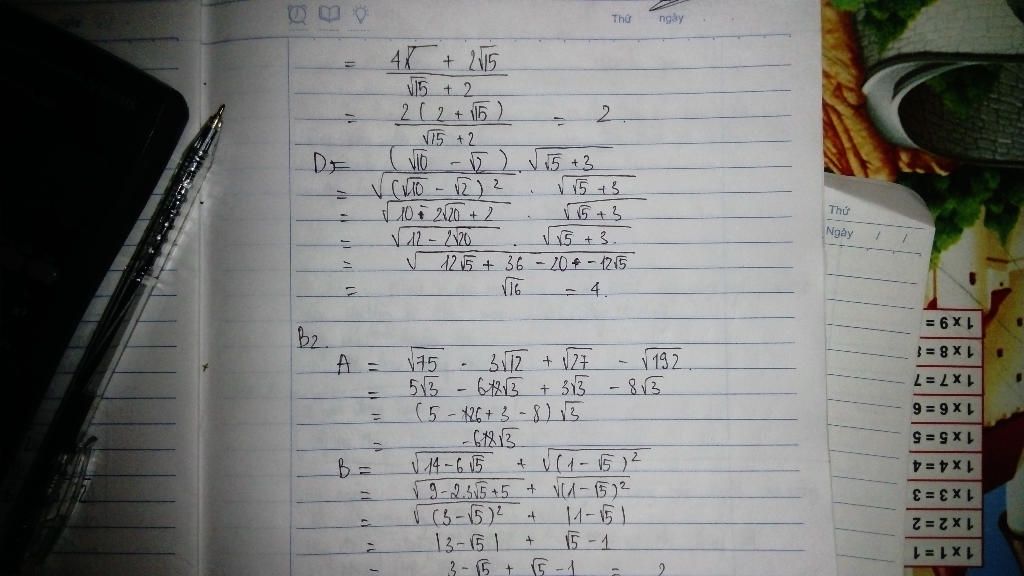 Thứ ngày
= (4√ + 2√15) / (√15 + 2)
= 2(2 + √15) / (√15 + 2) = 2.
D = (√10 - √2) . √(√5 + 3)
= √((√10 - √2)²) . √(√5 + 3)
= √(10 - 2√20 + 2) . √(√5 + 3)
= √(12 - 2√20) . √(√5 + 3).
= √(12√5 + 36 - 20 - 12√5)
= √16 = 4.
B2.
A = √75 - 3√12 + √27 - √192.
= 5√3 - 6√3 + 3√3 - 8√3
= (5 - 6 + 3 - 8)√3
= -6√3
B = √(14 - 6√5) + √((1 - √5)²)
= √(9 - 2.3√5 + 5) + √((1 - √5)²)
= √((3 - √5)²) + |1 - √5|
= |3 - √5| + √5 - 1
= 3 - √5 + √5 - 1 = 2
Thứ
Ngày / /
1 x 9 =
1 x 8 =
1 x 7 =
1 x 6 =
1 x 5 =
1 x 4 =
1 x 3 =
1 x 2 =
1 x 1 =